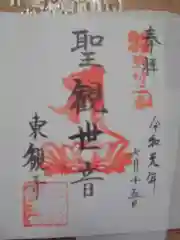 奉拝
令和元年
七月十五日
聖観世音
東観寺